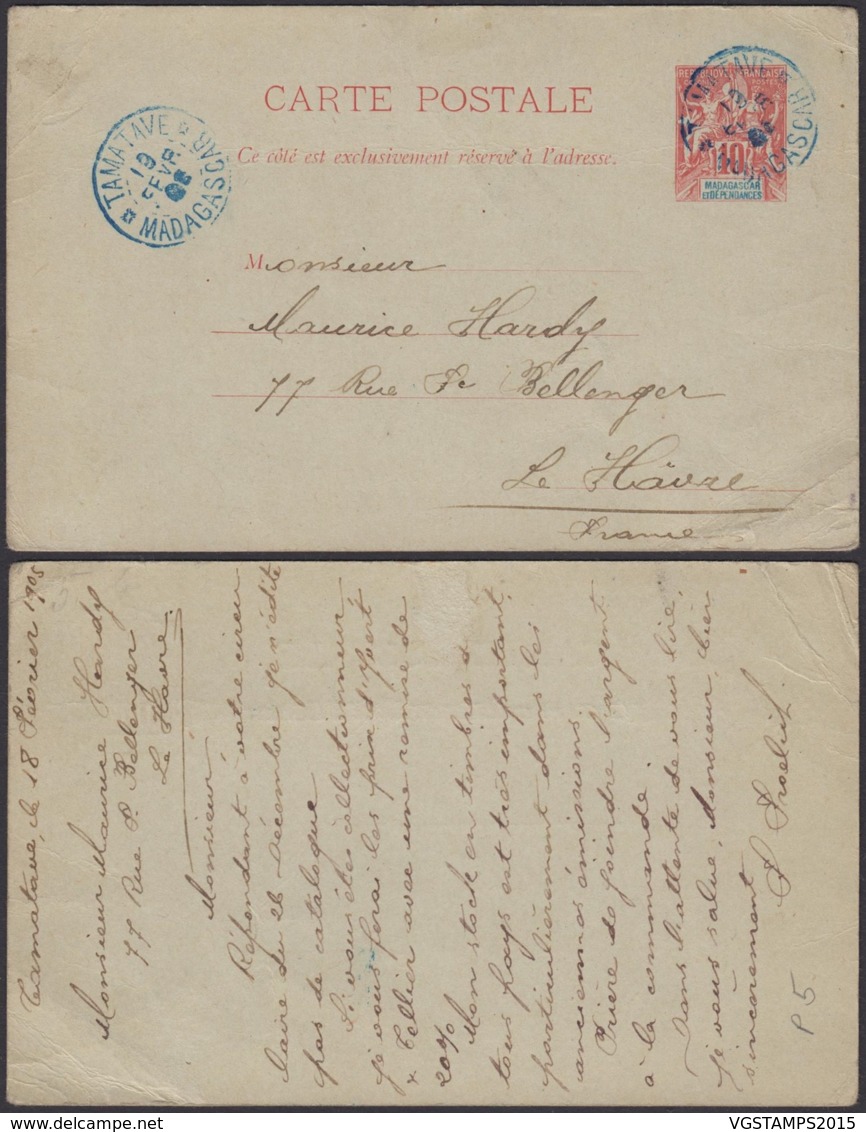 CARTE POSTALE
Ce côté est exclusivement réservé à l'adresse.
TAMATAVE
19
FEVR
MADAGASCAR
REPUBLIQUE FRANCAISE
POSTES
10
MADAGASCAR
ET DÉPENDANCES
TAMATAVE
19
MADAGASCAR
Monsieur
Maurice Hardy
77 Rue Fc Bellenger
Le Hâvre
France
Tamatave, le 18 Février 1905
Monsieur Maurice Hardy
77 Rue F. Bellenger
Le Havre.
Monsieur
Répondant à votre circu
laire du 26 Décembre je n'édite
pas de catalogue
Si vous êtes collectionneur
je vous ferai les prix d'Yvert
& Tellier avec une remise de
20%
Mon stock en timbres de
tous pays est très important,
particulièrement dans les
anciennes émissions.
Prière de joindre l'argent
à la commande.
Dans l'attente de vous lire,
je vous salue, Monsieur, bien
sincèrement
P5
VGSTAMPS2015